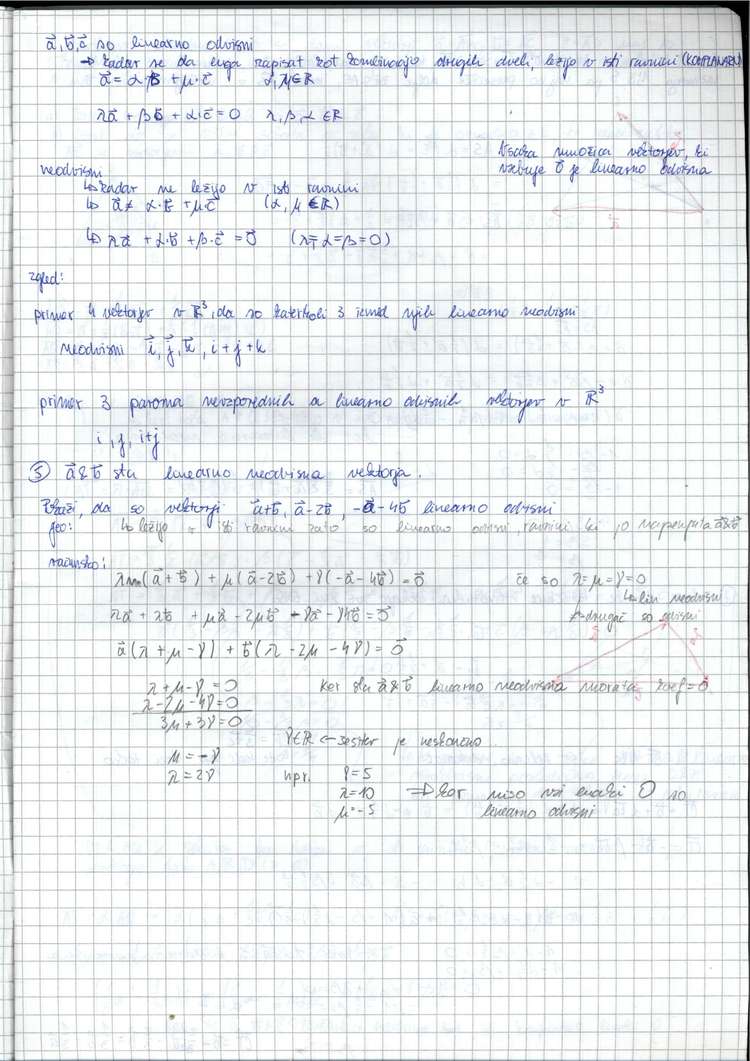 a⃗, b⃗, c⃗ so linearno odvisni
→ kadar se da enga zapisat kot kombinacijo drugih dveh, ležijo v isti ravnini (KOMPLANARNI)
a⃗ = α·b⃗ + μ·c⃗ α, μ ∈ ℝ
λa⃗ + βb⃗ + α·c⃗ = 0 λ, β, α ∈ ℝ
Vsaka množica vektorjev, ki
vsebuje 0⃗ je linearno odvisna
neodvisni
↳ kadar ne ležijo v isti ravnini
↳ a⃗ ≠ α·b⃗ + μ·c⃗ (α, μ ∈ ℝ)
↳ λa⃗ + α·b⃗ + β·c⃗ = 0⃗ (λ = α = β = 0)
zgled:
primer 4 vektorjev v ℝ³, da so katerikoli 3 izmed njih linearno neodvisni
neodvisni i⃗, j⃗, k⃗, i + j + k
primer 3 paroma nevzporednih a linearno odvisnih vektorjev v ℝ³
i, j, i+j
⑤ a⃗ & b⃗ sta linearno neodvisna vektorja.
Pokaži, da so vektorji a⃗+b⃗, a⃗-2b⃗, -a⃗-4b⃗ linearno odvisni
geo: ↳ ležijo v isti ravnini zato so linearno odvisni, ravnini ki jo napenjata a⃗&b⃗
računsko:
λ(a⃗ + b⃗) + μ(a⃗ - 2b⃗) + γ(-a⃗ - 4b⃗) = 0⃗ če so λ = μ = γ = 0
↳ lin neodvisni
λa⃗ + λb⃗ + μa⃗ - 2μb⃗ - γa⃗ - γ4b⃗ = 0⃗ drugač so odvisni
a⃗(λ + μ - γ) + b⃗(λ - 2μ - 4γ) = 0⃗
λ + μ - γ = 0 Ker sta a⃗ & b⃗ linearno neodvisna morata koef = 0
λ - 2μ - 4γ = 0
3μ + 3γ = 0
γ ∈ ℝ ← rešitev je neskončno
μ = -γ
λ = 2γ npr. γ = 5
λ = 10 ⇒ ker niso vsi enaki 0 so
μ = -5 linearno odvisni